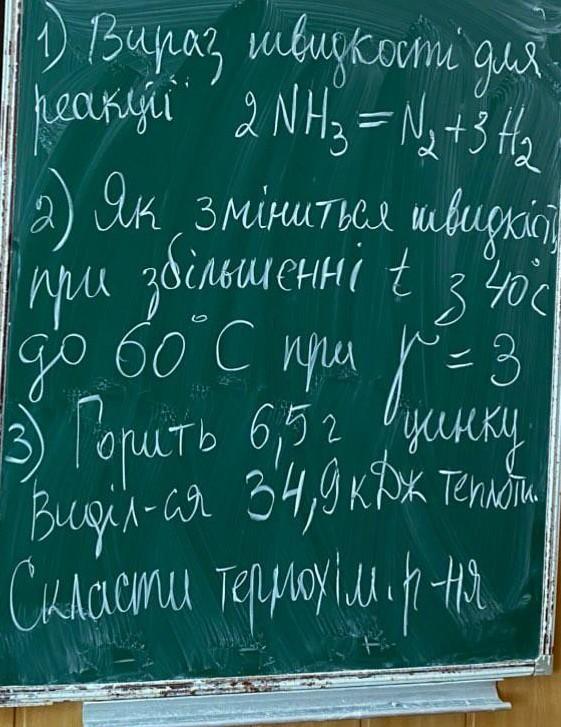 1) Вираз швидкості для
реакції 2NH₃ = N₂ + 3H₂
2) Як зміниться швидкість
при збільшенні t з 40°C
до 60°C при γ = 3
3) Горить 6,5г цинку
Виділ-ся 34,9 кДж теплоти.
Скласти термохім. р-ня